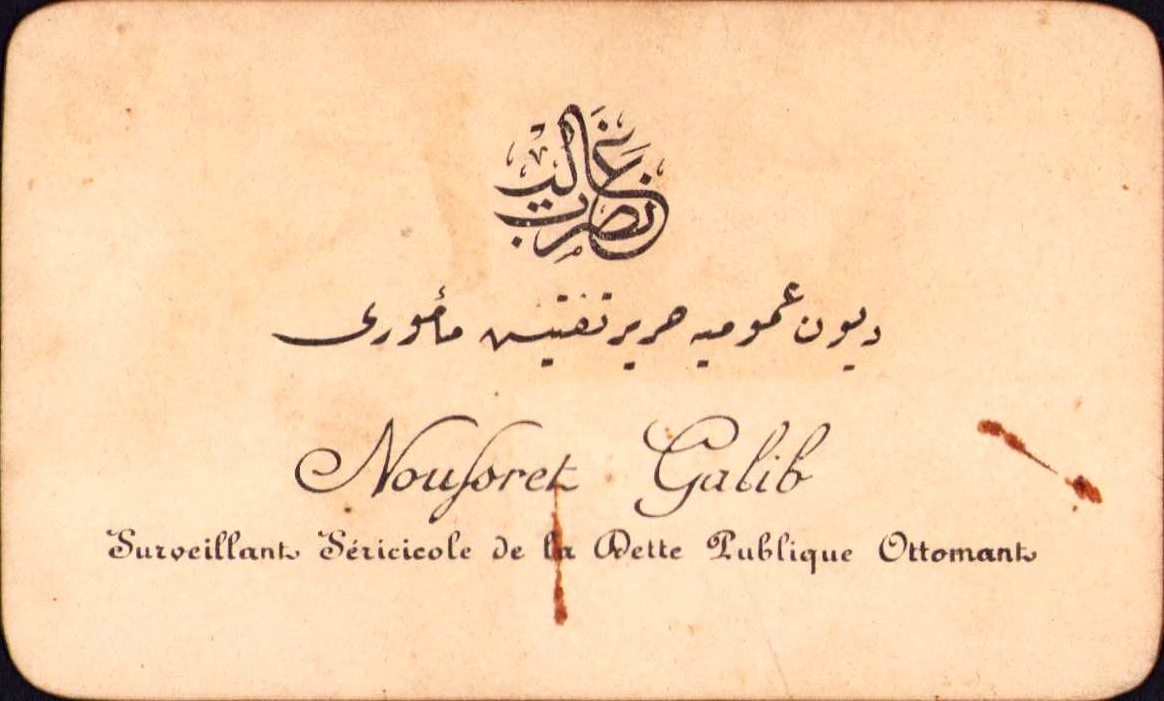 نصرت غالب
ديون عموميه حرير تفتيش مأمورى
Nousoret Galib
Surveillant Séricicole de la Dette Publique Ottomant